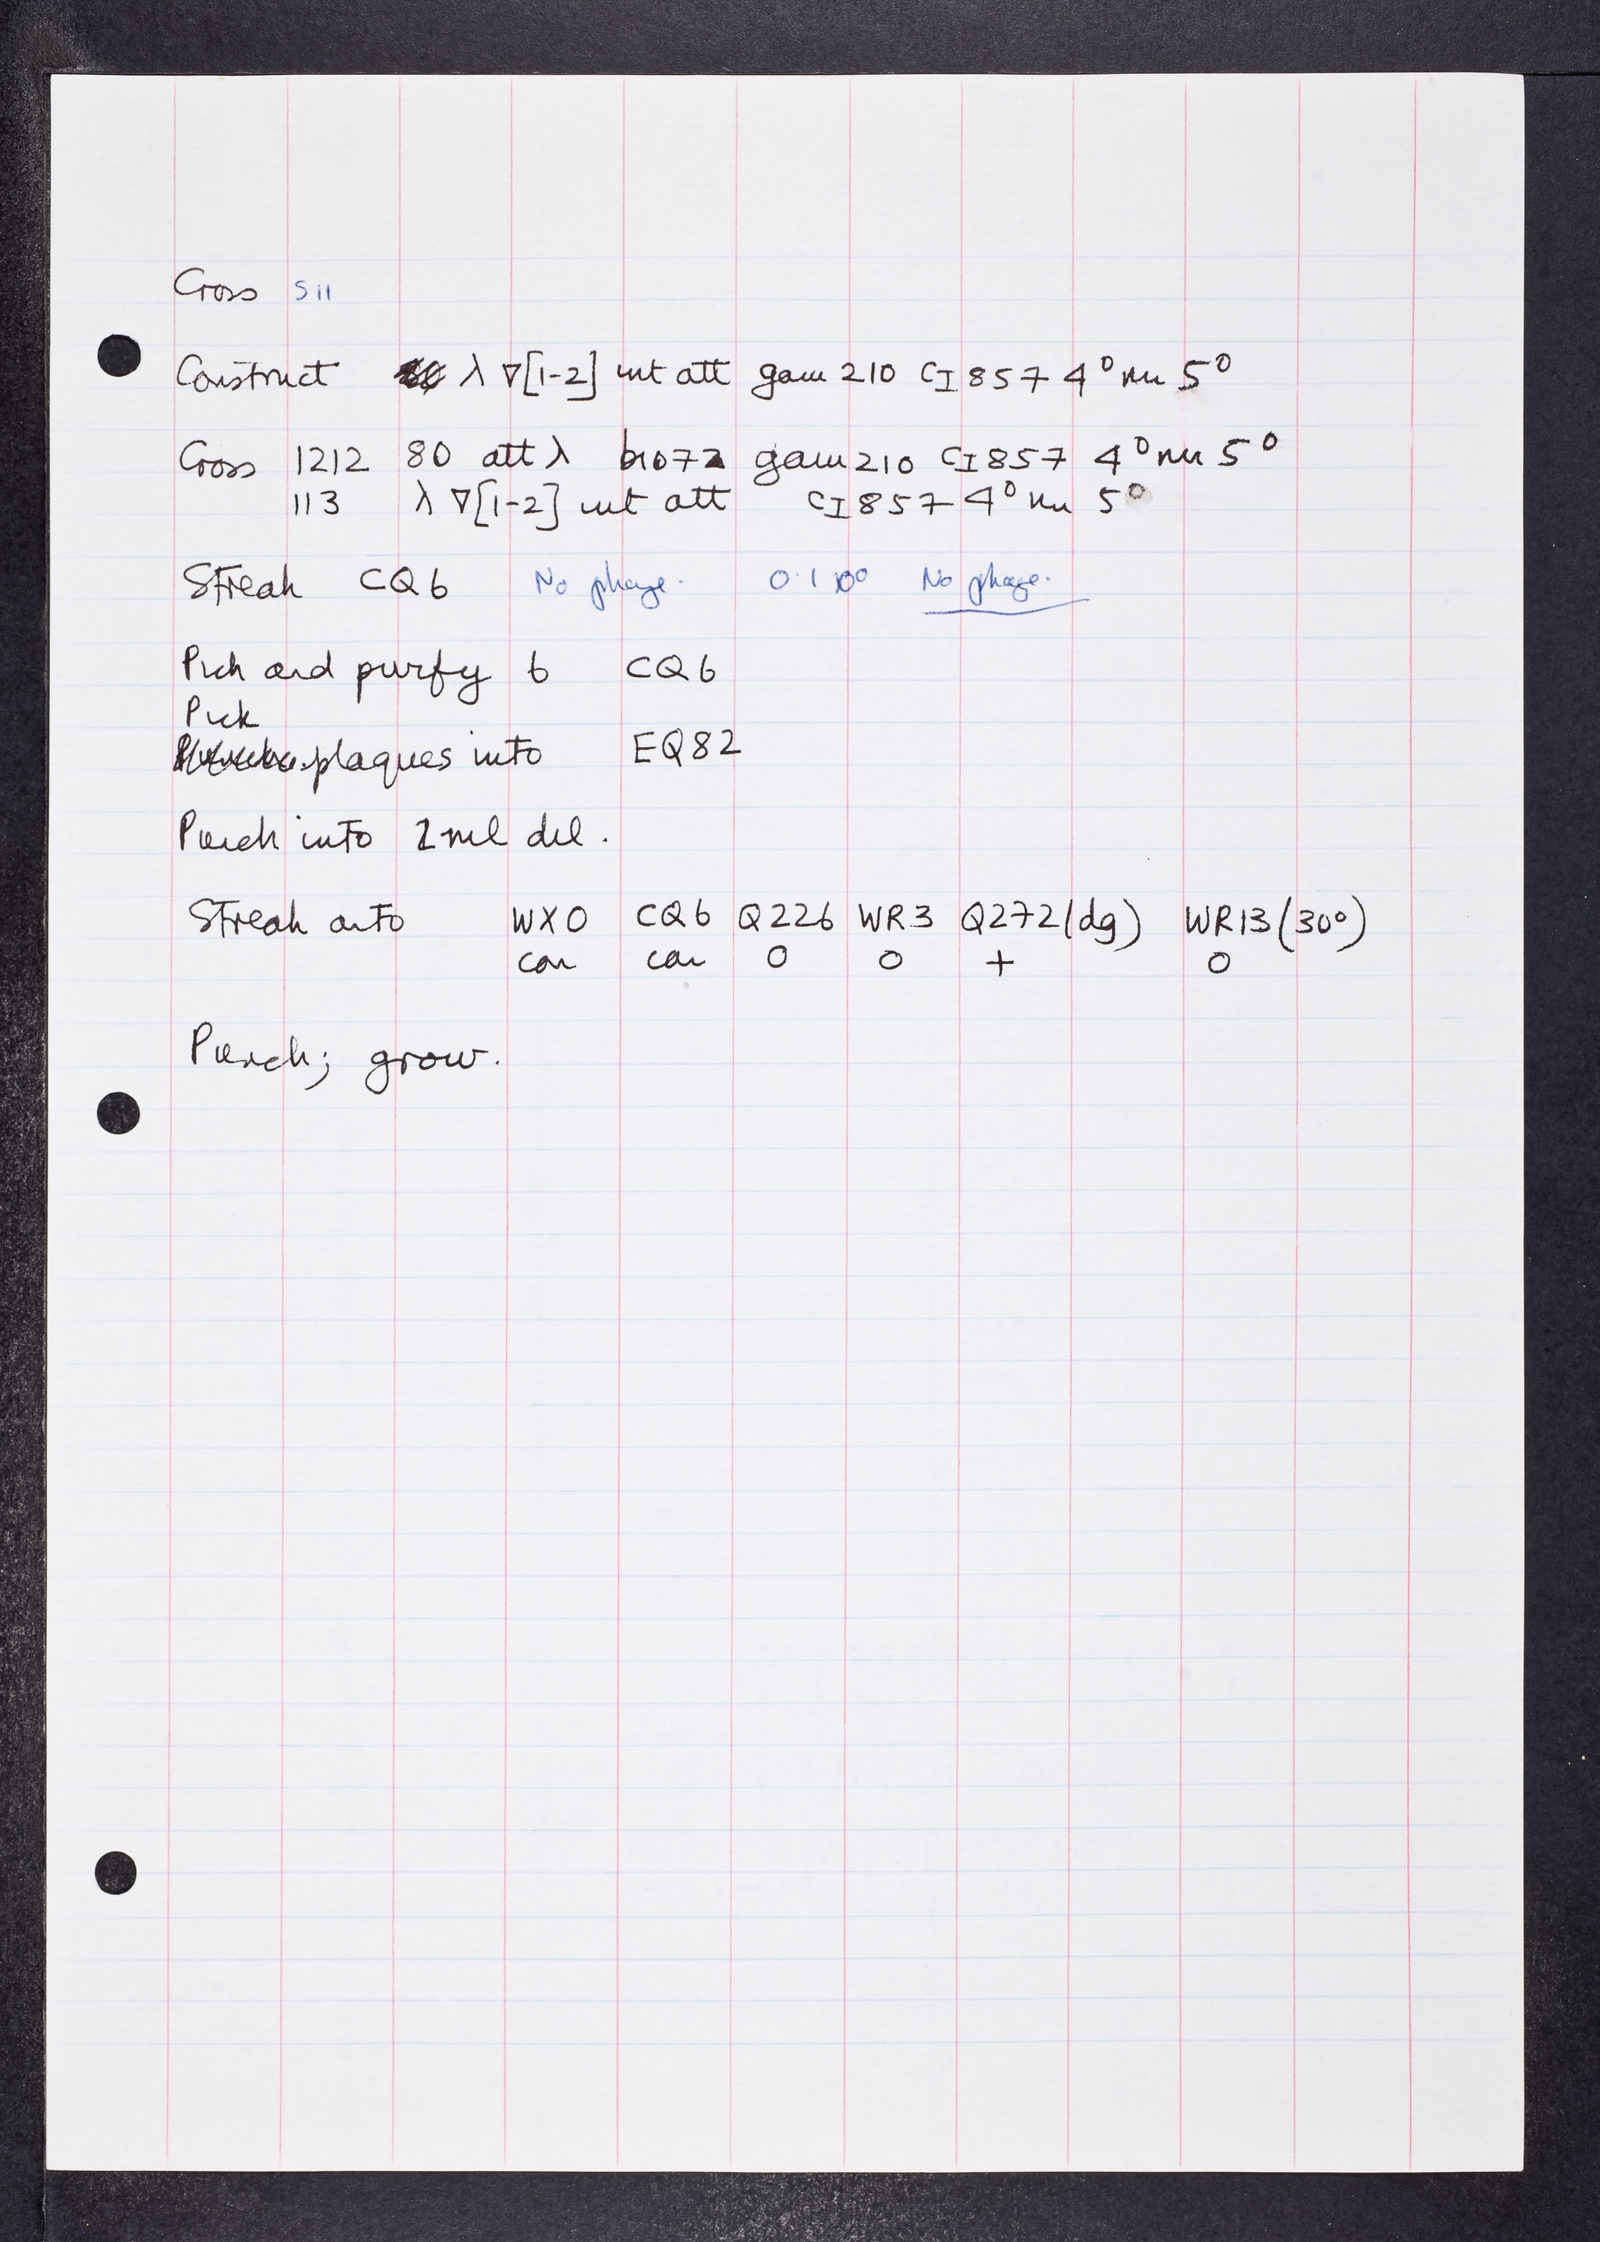 Cross S11
Construct λ ∇[1-2] int att gam 210 cI 857 4° nin 5°
Cross 1212 80 att λ bio72 gam 210 cI 857 4° nin 5°
113 λ ∇[1-2] int att cI 857 4° nin 5°
Streak CQ6 No phage. No phage.
Pick and purify 6 CQ6
Pick
plaques into EQ82
Punch into 1 ml dil.
Streak onto WX0 CQ6 Q226 WR3 Q272 (dg) WR13 (30°)
con con 0 0 + 0
Punch; grow.